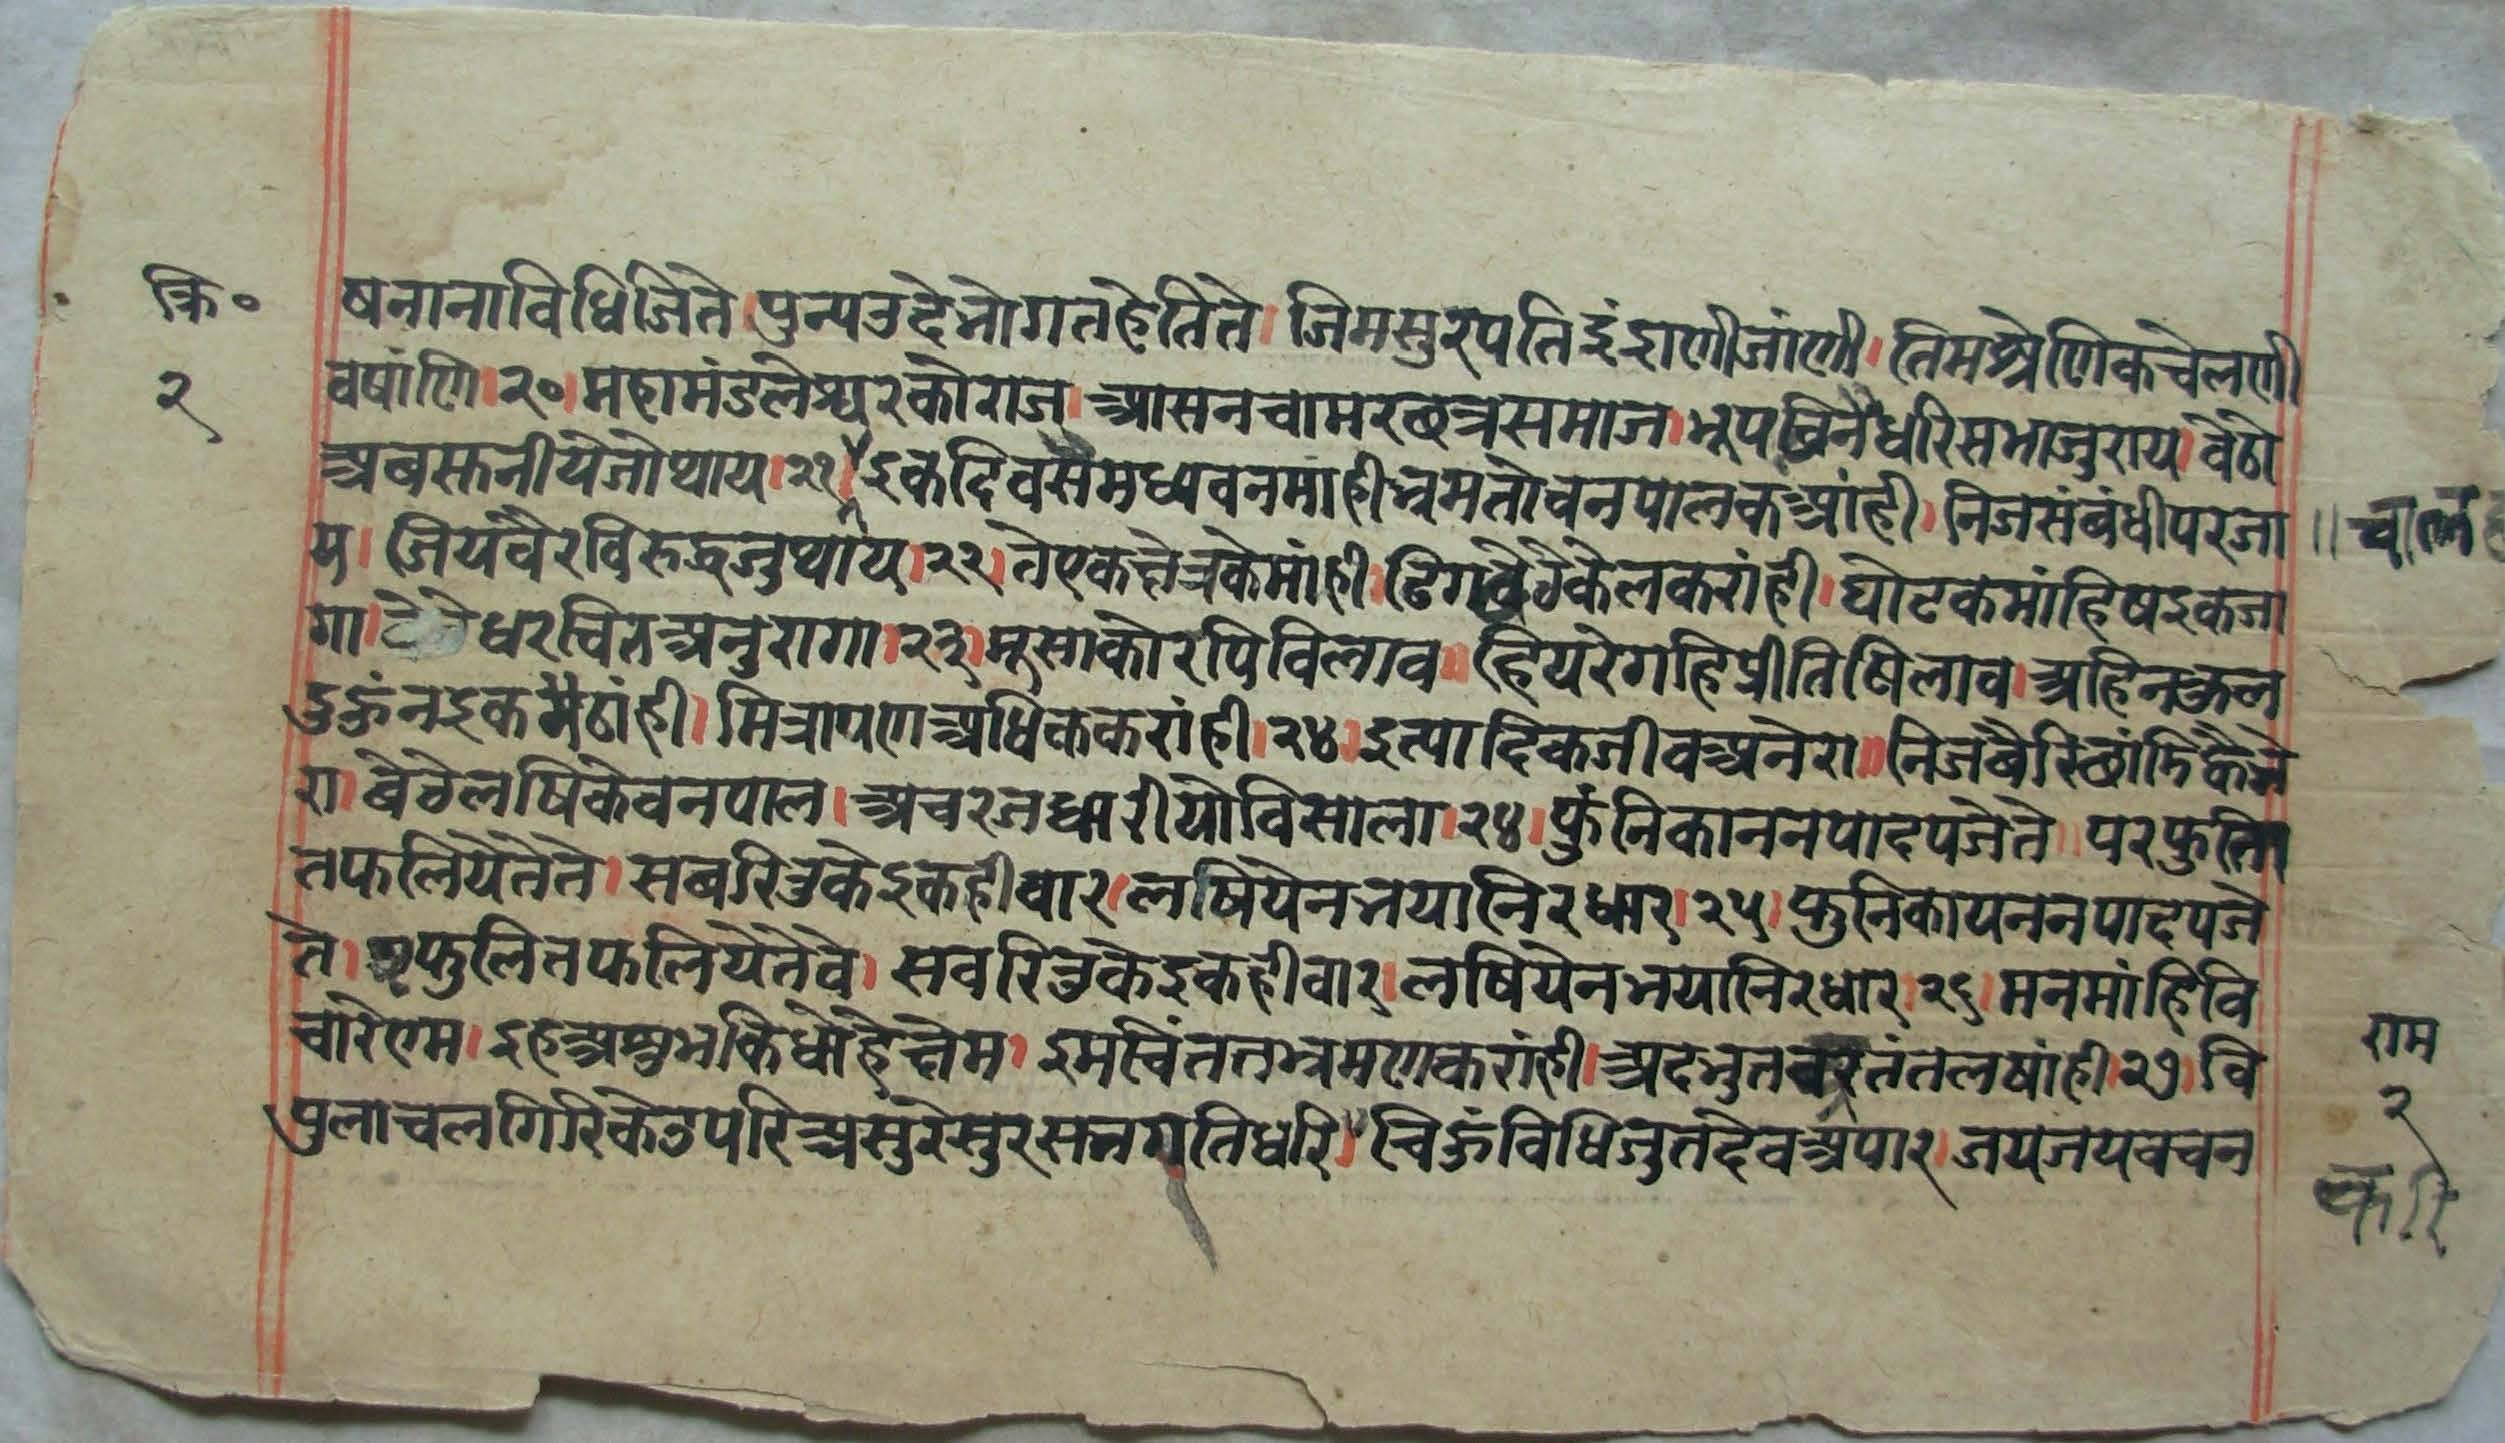 क्रि॰
२
षनानाविधिजिते।पुन्यउदेभोगतहेतिते। जिमसुरपतिइंद्राणीजांणी।तिमश्रेणिकचेलणी
वषांणि।२०।महामंडलेश्वरकोराज।आसनचामरछत्रसमाज।भूपविनैधरिसभाजुराय।वेठो
अबस्तनीयेजोथाय।२१।इकदिवसमध्यवनमांहीभ्रमतोवनपालकआंही।निजसंबंधीपरजा
य। जियवैरविरुद्धजुथाय।२२।तेएकक्षेत्रकेमांही।ढिगवैठेकेलकरांही।घोटकमांहिषइकजा
गा।धरचितअनुरागा।२३।मूसाकोरपिविलाव॥हियरेगहिप्रीतिषिलाव।अहिनकुल
दुऊंनइकमैठांही।मित्रापणअधिककरांही।२४।इत्यादिकजीवअनेरा॥निजबैरिछांडिकैभे
रा।बेठेलषिकेवनपाल।अचरजधारीयोविसाला।२४।फुंनिकाननपादपजेते॥परफुलि
तफलियेतेते।सबरितुकेइकहीवार।लषियेनभयानिरधार।२५।फुनिकायननपादपजे
ते।प्रफुलितफलियेतेवे।सवरितुकेइकहीवार।लषियेनभयानिरधार।२६।मनमांहिवि
चारेएम।इहअशुभकिधोहैक्षेम।इमचिंततभ्रमणकरांही।अदभुततंतलषांही।२७।वि
पुलाचलगिरिकेउपरिअसुरेसुरसनगतिधरि।चिऊंविधिजुतदेवअपार।जयजयवचन
॥चाल
राम
२
करि